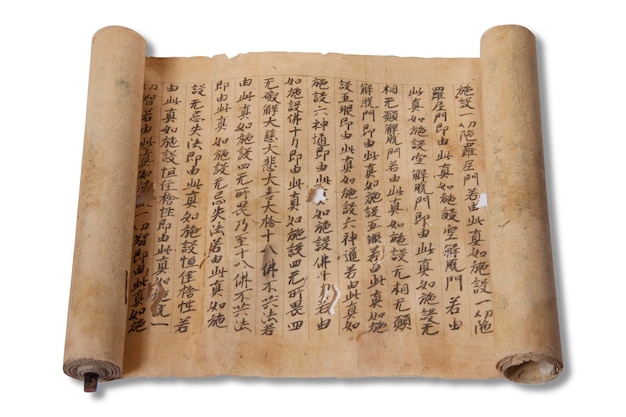 施設一切陁羅尼門若由此真如施設一切陁
羅尼門即由此真如施設空解脫門若由
此真如施設空解脫門即由此真如施設无
相无願解脫門若由此真如施設无相无願
解脫門即由此真如施設五眼若由此真如施
設五眼即由此真如施設六神通若由此真如
施設六神通即由此如施設佛十力若由
如施設佛十力即由此真如施設四无所畏四
无礙解大慈大悲大喜大捨十八佛不共法若
由此真如施設四无所畏乃至十八佛不共法
即由此真如施設无忘失法若由此真如施
設无忘失法即由此真如施設恒住捨性若
由此真如施設恒住捨性即由此真如施一
切智若由此真如施一切智即由此真如施